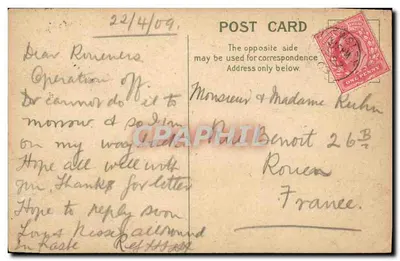 22/4/09
POST CARD
The opposite side
may be used for correspondence
Address only below.
Dear Roueners
Operation off.
Dr cannot do it to
morrow & so I'm
on my way
Hope all well with
you, Thanks for letter
Hope to reply soon
Lots Kisses all round
In haste
Monsieur & Madame Kuhn
Rue Benoit 26B
Rouen
France.